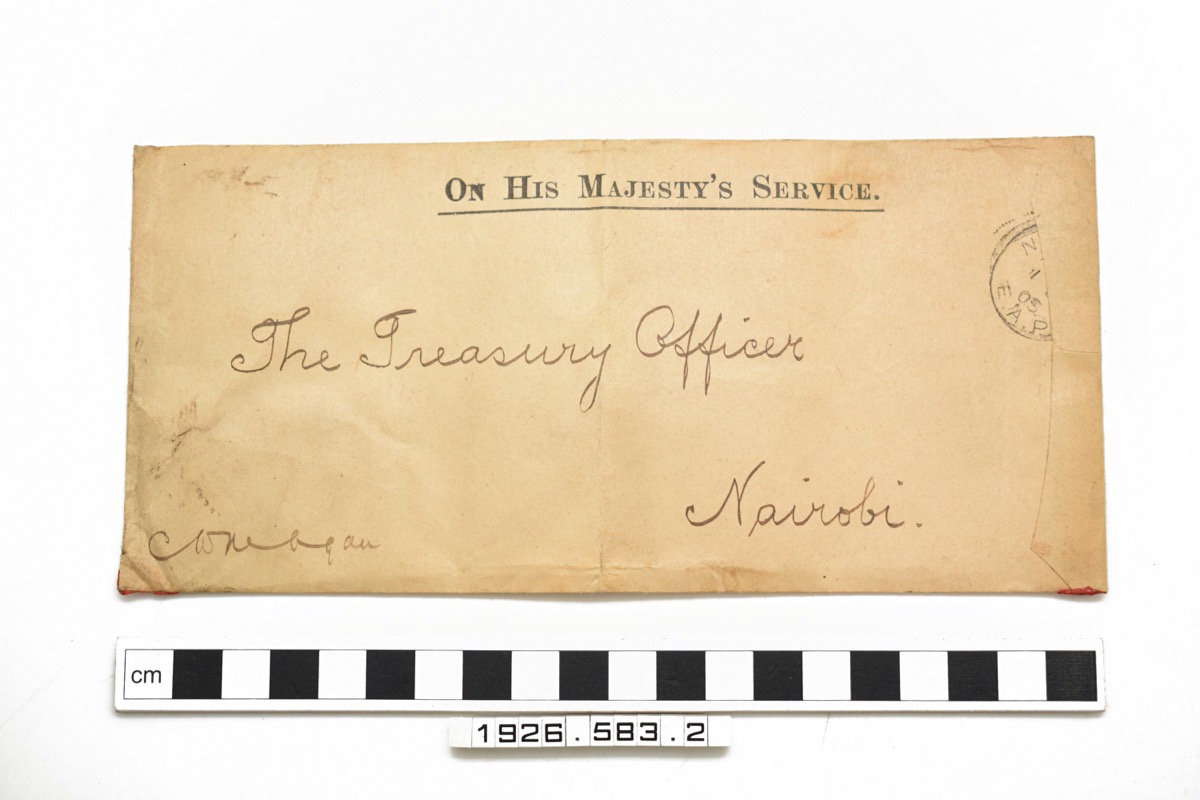 On His Majesty's Service.
The Treasury Officer
Nairobi.
E.A.P.
cm
1926.583.2